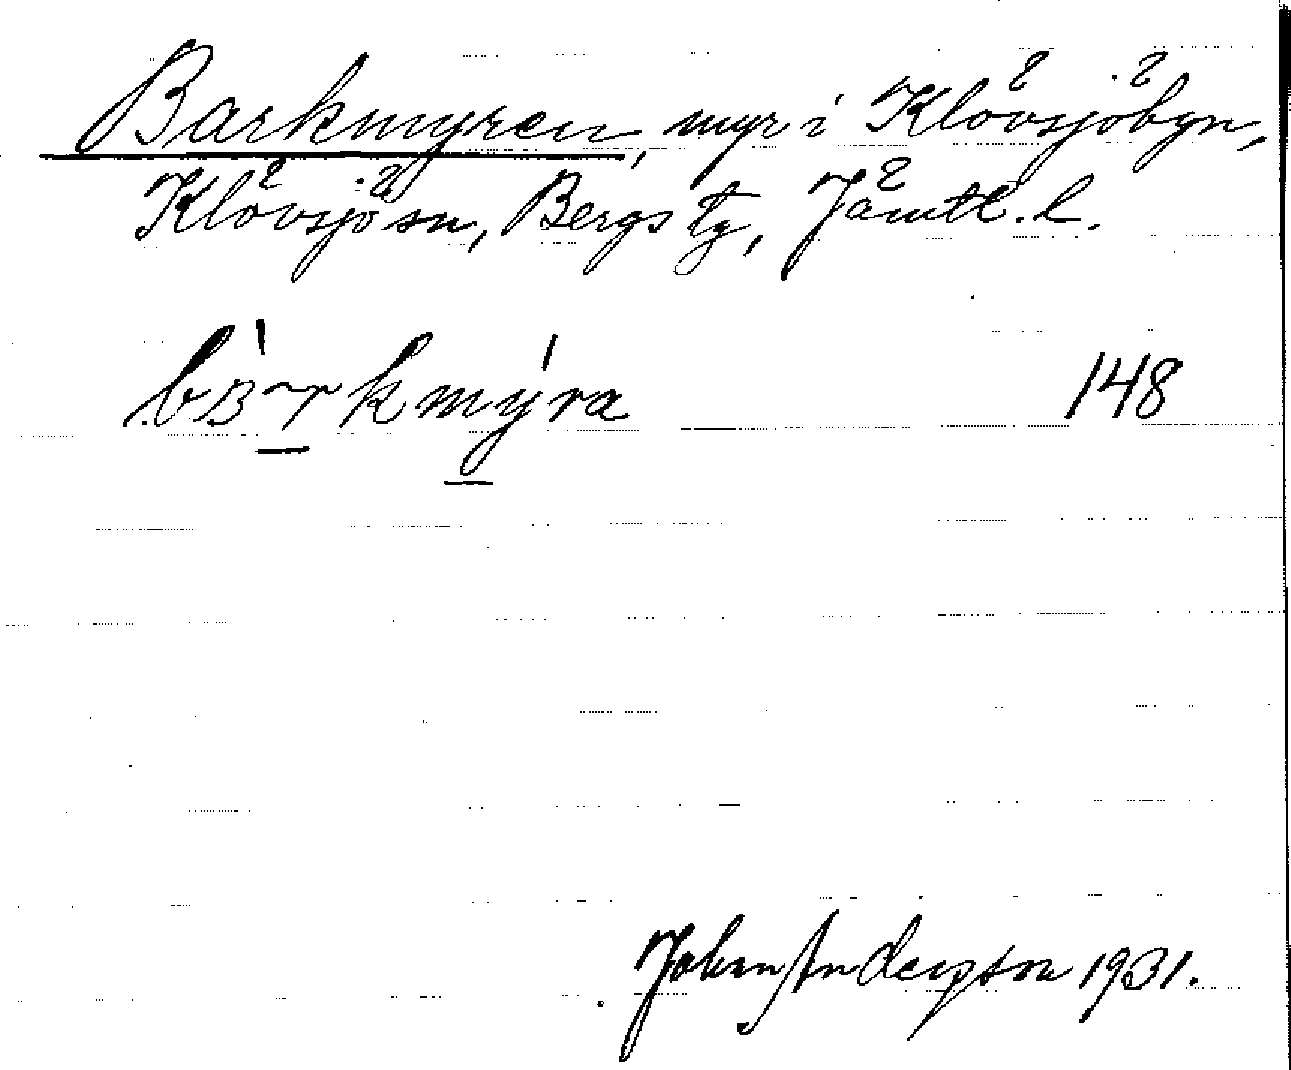 Barkmyren, myr i Klövsjöbyn,
Klövsjö sn, Bergs tg, Jämtl. l.
148
Johan Anderson 1931.